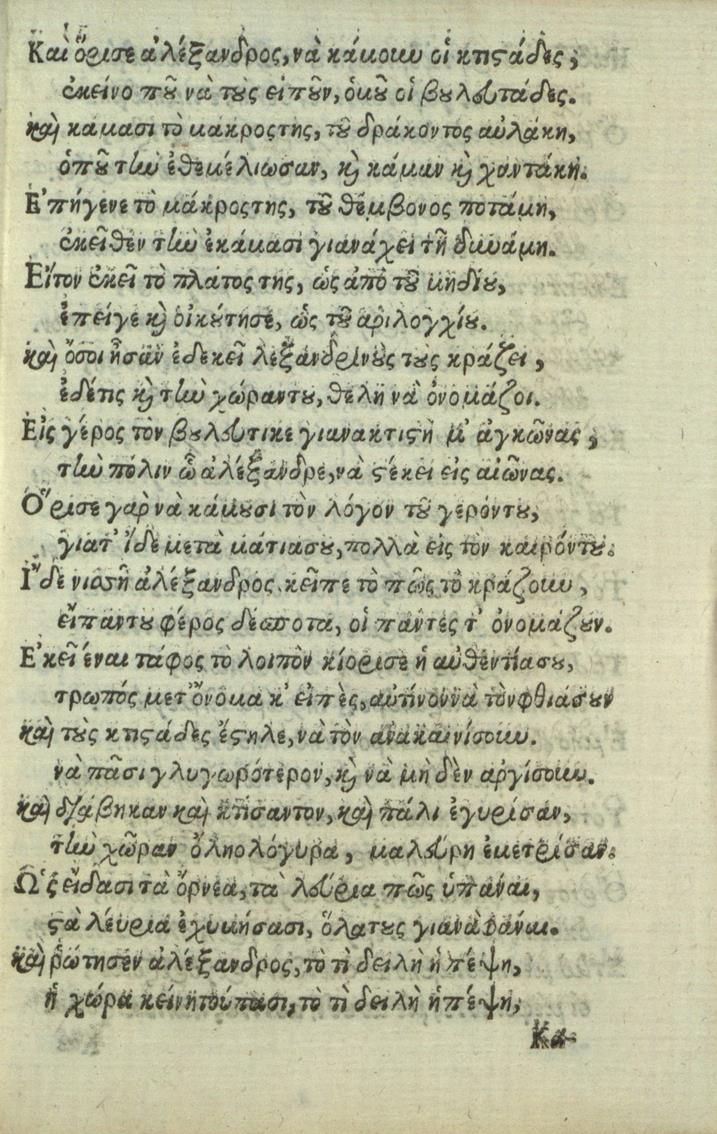 Καὶ ὅρισε ἀλέξανδρος, νὰ κάμουν οἱ κτιστάδες,
ἐκεῖνο ποῦ νὰ τοὺς εἰποῦν, ὁμοῦ οἱ βουλευτάδες.
καὶ κάμασι τὸ μάκροςτης, τοῦ δράκοντος αὐλάκη,
ὁποῦ τὴν ἐθεμέλιωσαν, καὶ κάμαν καὶ χαντάκη.
Ἐπήγενε τὸ μάκροςτης, τοῦ θέμβονος ποτάμη,
ἐκεῖθεν τὴν ἐκάμασι γιανάχει τῆ δυνάμη.
Εἴτον ἐκεῖ τὸ πλάτος της, ὡς ἀπὸ τοῦ μηδίου,
ἐπείγε καὶ ὁἰκούτησε, ὡς τοῦ αριλογχίου.
καὶ ὅσοι ἦσαν ἐδεκεῖ λεξανδρινοὺς τοὺς κράζει,
ἐδέτις καὶ τὴν χώραντου, θελη νὰ ὀνομάζοι.
Εἰς γέρος τον βουλεύτικε γιανακτιστῆ μ' ἀγκῶνας,
τὴν πόλιν ὦ ἀλέξανδρε, νὰ στέκει εἰς αἰῶνας.
Ὅρισε γαρ νὰ κάμουσι τὸν λόγον τοῦ γερόντου,
γιατ' ἴδε μετὰ μάτιασου, πολλὰ εἰς τὸν καιρόντου.
Ἴδε νιαστῆ ἀλέξανδρος κεῖπε τὸ πῶς τὸ κράζουν,
εἶπαντου φέρος δέσποτα, οἱ πάντες τ' ὀνομάζουν.
Ἐκεῖ ἐναι τάφος τὸ λοιπὸν κίορισε ἡ αὐθεντίασου,
τρωπός μετ' ὄνομα κ' εἰπὲς, αὐτίνοννὰ τὸνφθιάσουν
καὶ τοὺς κτιστάδες ἔστηλε, νὰ τὸν ἀνακαινίσουν.
νὰ πᾶσι γλυγωρότερον, καὶ νὰ μὴ δὲν ἀργίσουν.
καὶ διάβηκαν καὶ κτίσαντον, καὶ πάλι ἐγυρίσαν,
τὴν χῶραν ὅληολόγυρα, μαλεύρη ἐμετρίσαν.
Ὡς εἴδασι τὰ ὄρνεα, τὰ λεύρια πῶς ὑπάναι,
στὰ λέυρια ἐχυμήσασι, ὅλατους γιανὰ φάναι.
καὶ ῥώτησεν ἀλέξανδρος, τὸ τὶ δειλὴ ἡ πέψη,
ἡ χώρα κείνητούπασι, τὸ τὶ δειλὴ ἡπέψη,
Κα-